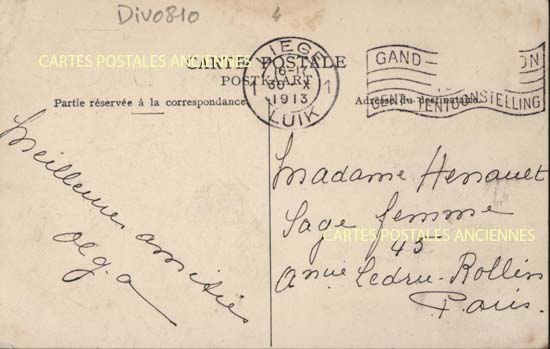 Div0810
4
CARTES POSTALES ANCIENNES
CARTE POSTALE
POSTKAART
Partie réservée à la correspondance.
Adresse du destinataire.
LIEGE
1 16-17 1
30 X
1913
LUIK
GAND
GENT TENTOONSTELLING
Meilleures amitiés
Olga
Madame Henault
Sage femme
CARTES POSTALES ANCIENNES
45
Avnue Ledru-Rollin
Paris.